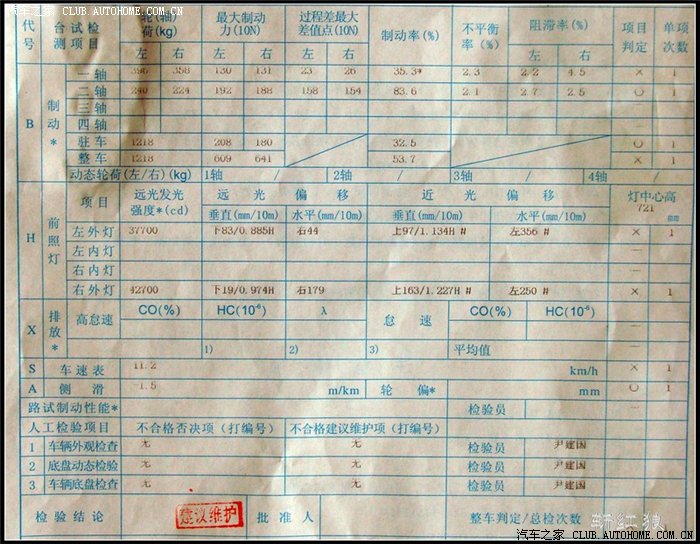 汽车之家 CLUB.AUTOHOME.COM.CN
汽车之家 CLUB.AUTOHOME.COM.CN
代号 台试检测项目 轮(轴)荷(kg) 最大制动力(10N) 过程差最大差值点(10N) 制动率(%) 不平衡率(%) 阻滞率(%) 项目判定 单项次数
左 右 左 右 左 右 左 右
B 制动* 一轴 396 358 130 131 23 26 35.3* 2.3 2.2 4.5 × 1
二轴 240 224 192 188 158 154 83.6 2.1 2.7 2.5 ○ 1
三轴
四轴
驻车 1218 208 180 32.5 ○ 1
整车 1218 609 641 53.7 × 1
动态轮荷(左/右)(kg) 1轴 / 2轴 / 3轴 / 4轴 /
H 前照灯 项目 远光发光强度*(cd) 远光偏移 近光偏移 灯中心高 721 mm
垂直(mm/10m) 水平(mm/10m) 垂直(mm/10m) 水平(mm/10m)
左外灯 37700 下83/0.885H 右44 上97/1.134H # 左356 # × 1
左内灯 —
右内灯 —
右外灯 42700 下19/0.974H 右179 上163/1.227H # 左250 # × 1
X 排放* 高怠速 CO(%) HC(10⁻⁶) λ 怠速 CO(%) HC(10⁻⁶) —
1) 2) 3) 平均值 —
S 车速表 11.2 km/h × 1
A 侧滑 -1.5 m/km 轮偏* mm ○ 1
路试制动性能* 检验员 —
人工检验项目 不合格否决项(打编号) 不合格建议维护项(打编号)
1 车辆外观检查 无 无 检验员 尹建国
2 底盘动态检验 无 无 检验员 尹建国
3 车辆底盘检查 无 无 检验员 尹建国
检验结论 建议维护 批准人 整车判定/总检次数
汽车之家 CLUB.AUTOHOME.COM.CN
汽车之家 CLUB.AUTOHOME.COM.CN